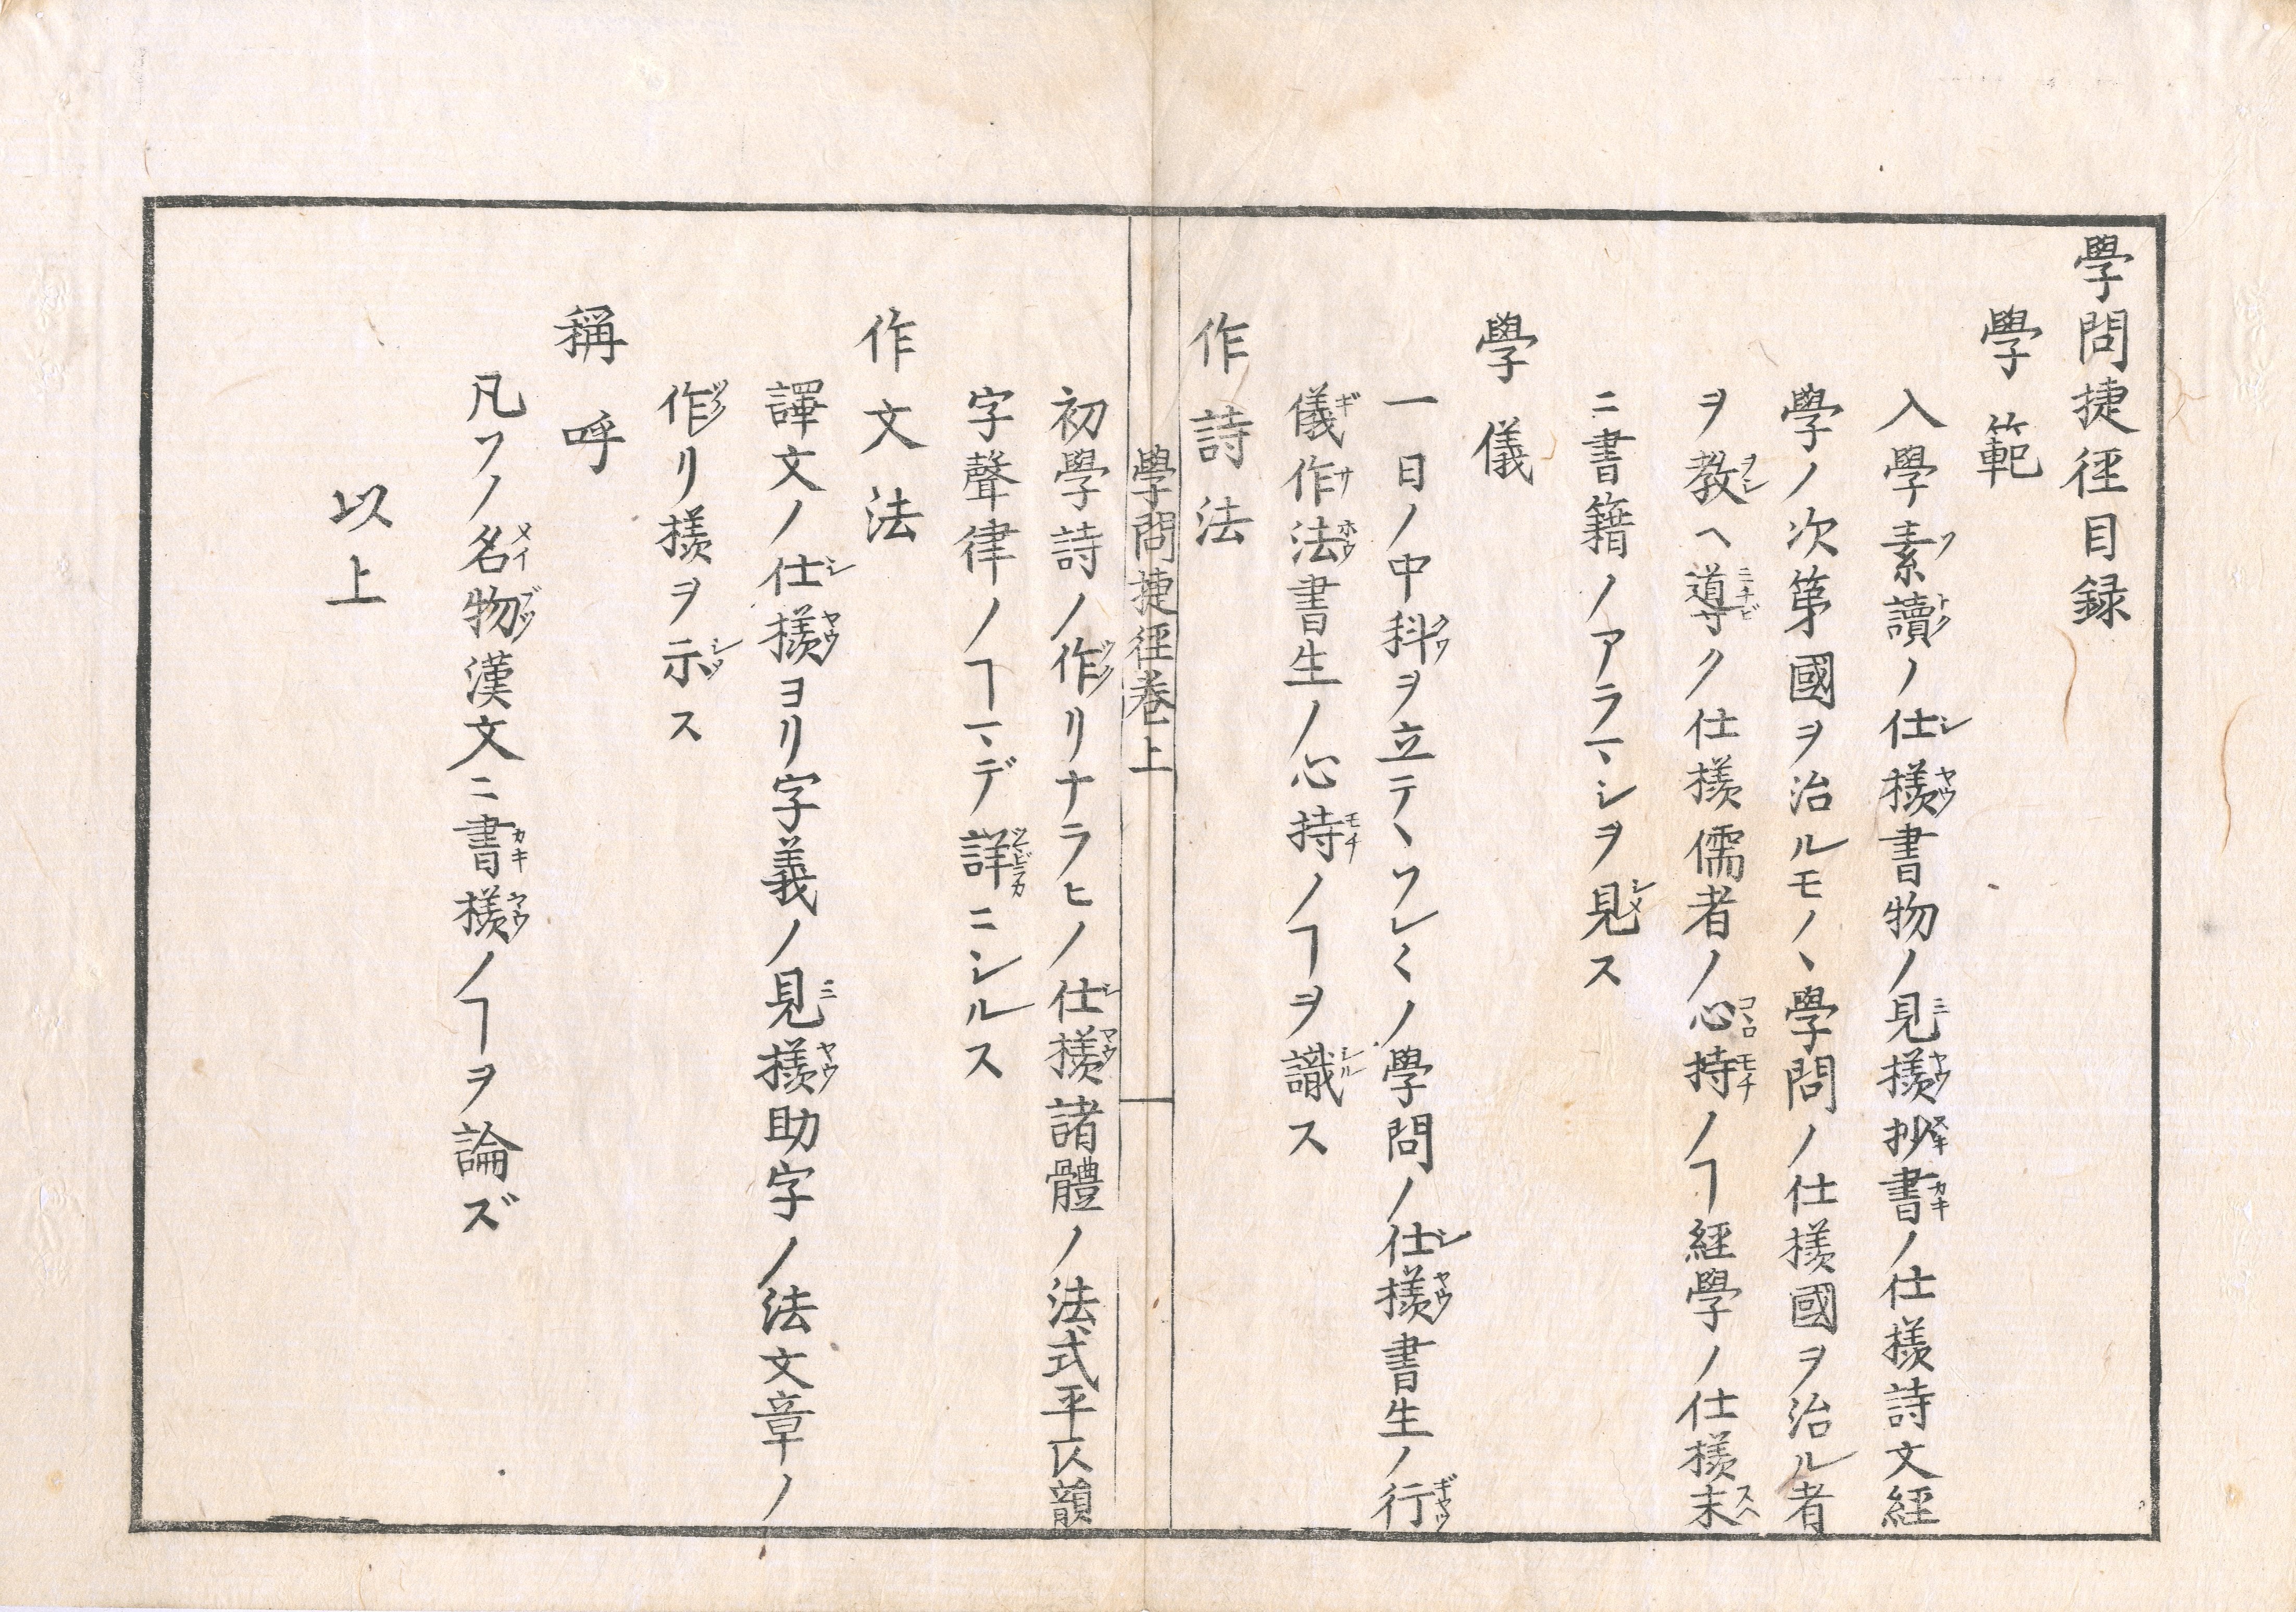 學問捷徑目録
學範
入學素讀ノ仕樣書物ノ見樣抄書ノ仕樣詩文經
學ノ次第國ヲ治ルモノヽ學問ノ仕樣國ヲ治ル者
ヲ教ヘ導ク仕樣儒者ノ心持ノヿ經學ノ仕樣末
ニ書籍ノアラマシヲ見ス
學儀
一日ノ中科ヲ立テヽソレ〱ノ學問ノ仕樣書生ノ行
儀作法書生ノ心持ノヿヲ識ス
作詩法
學問捷徑巻上 一
初學詩ノ作リナラヒノ仕樣諸體ノ法式平仄韻
字聲律ノヿマデ詳ニシルス
作文法
譯文ノ仕樣ヨリ字義ノ見樣助字ノ法文章ノ
作リ樣ヲ示ス
稱呼
凡ソノ名物漢文ニ書樣ノヿヲ論ズ
以上